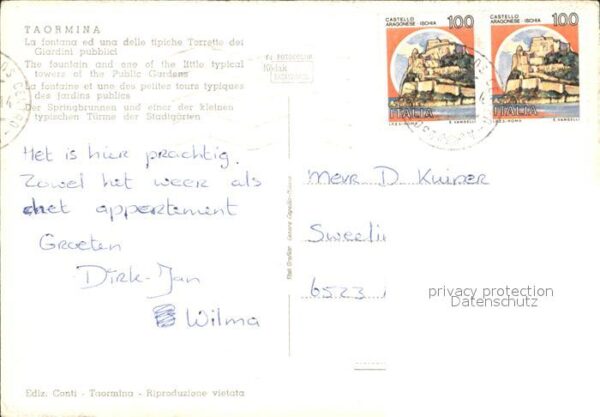 TAORMINA
La fontana ed una delle tipiche Torrette dei
Giardini pubblici
The fountain and one of the little typical
towers of the Public Gardens
La fontaine et une des petites tours typiques
des Jardins publics
Der Springbrunnen und einer der kleinen
typischen Türme der Stadtgärten
Het is hier prachtig.
Zowel het weer als
het appartement
Groeten
Dirk-Jan
Wilma
Ediz. Conti - Taormina - Riproduzione vietata
CASTELLO
ARAGONESE - ISCHIA
100
ITALIA
I.P.Z.S. - ROMA
E. VANGELLI
CASTELLO
ARAGONESE - ISCHIA
100
ITALIA
I.P.Z.S. - ROMA
E. VANGELLI
Mevr D Kuiper
Sweeli
6523
privacy protection
Datenschutz